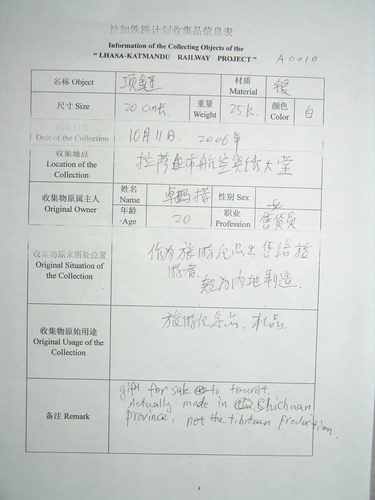 拉加铁路计划收集品信息表
Information of the Collecting Objects of the
“ LHASA-KATMANDU RAILWAY PROJECT ” A0010
名称 Object 项链 材质 Material 银
尺寸 Size 20 重量 Weight 25k. 颜色 Color 白
Date of the Collection 10月11日. 2006年
收集地点
Location of the
Collection
拉萨市航空宾馆大堂
收集物原属主人
Original Owner
姓名 Name 卓玛措 性别 Sex 女
年龄 Age 20 职业 Profession 售货员
收集物原来所处位置
Original Situation of
the Collection
作为旅游纪念品出售给旅
游者.
为内地制造.
收集物原始用途
Original Usage of the
Collection
旅游纪念品, 礼品.
备注 Remark
gift for sale to tourist.
Actually made in Shichuan
province, not the tibitan production.